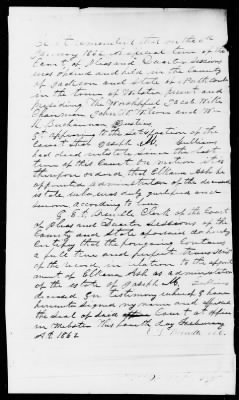 Be it remembered that on the 4th
1862 A special term of the
Court of Pleas and Quarter Sessions
was opened and held in the County
of Jackson and State of North
in the town of Webster present and
presiding The Worshipful Jacob
Chairman John
Justices
It appearing to the satisfaction of the
Court that Joseph M.
had died intestate since the last
term of this Court on motion it is
therefore ordered that Ellana Ash be
appointed administrator of the deceased
estate, who was duly qualified and
sworn according to law.
Clerk of the Court
of Pleas and Quarter Sessions of the
County and State aforesaid do hereby
Certify that the forgoing Contains
a full true and perfect transcript
of the record in relation to the appoint
ment of Ellana Ash as administration
of the estate of Joseph M.
deceased In testimony whereof I have
hereunto signed my name and affixed
the seal of said Court at office
in Webster This fourth day February
AD 1862